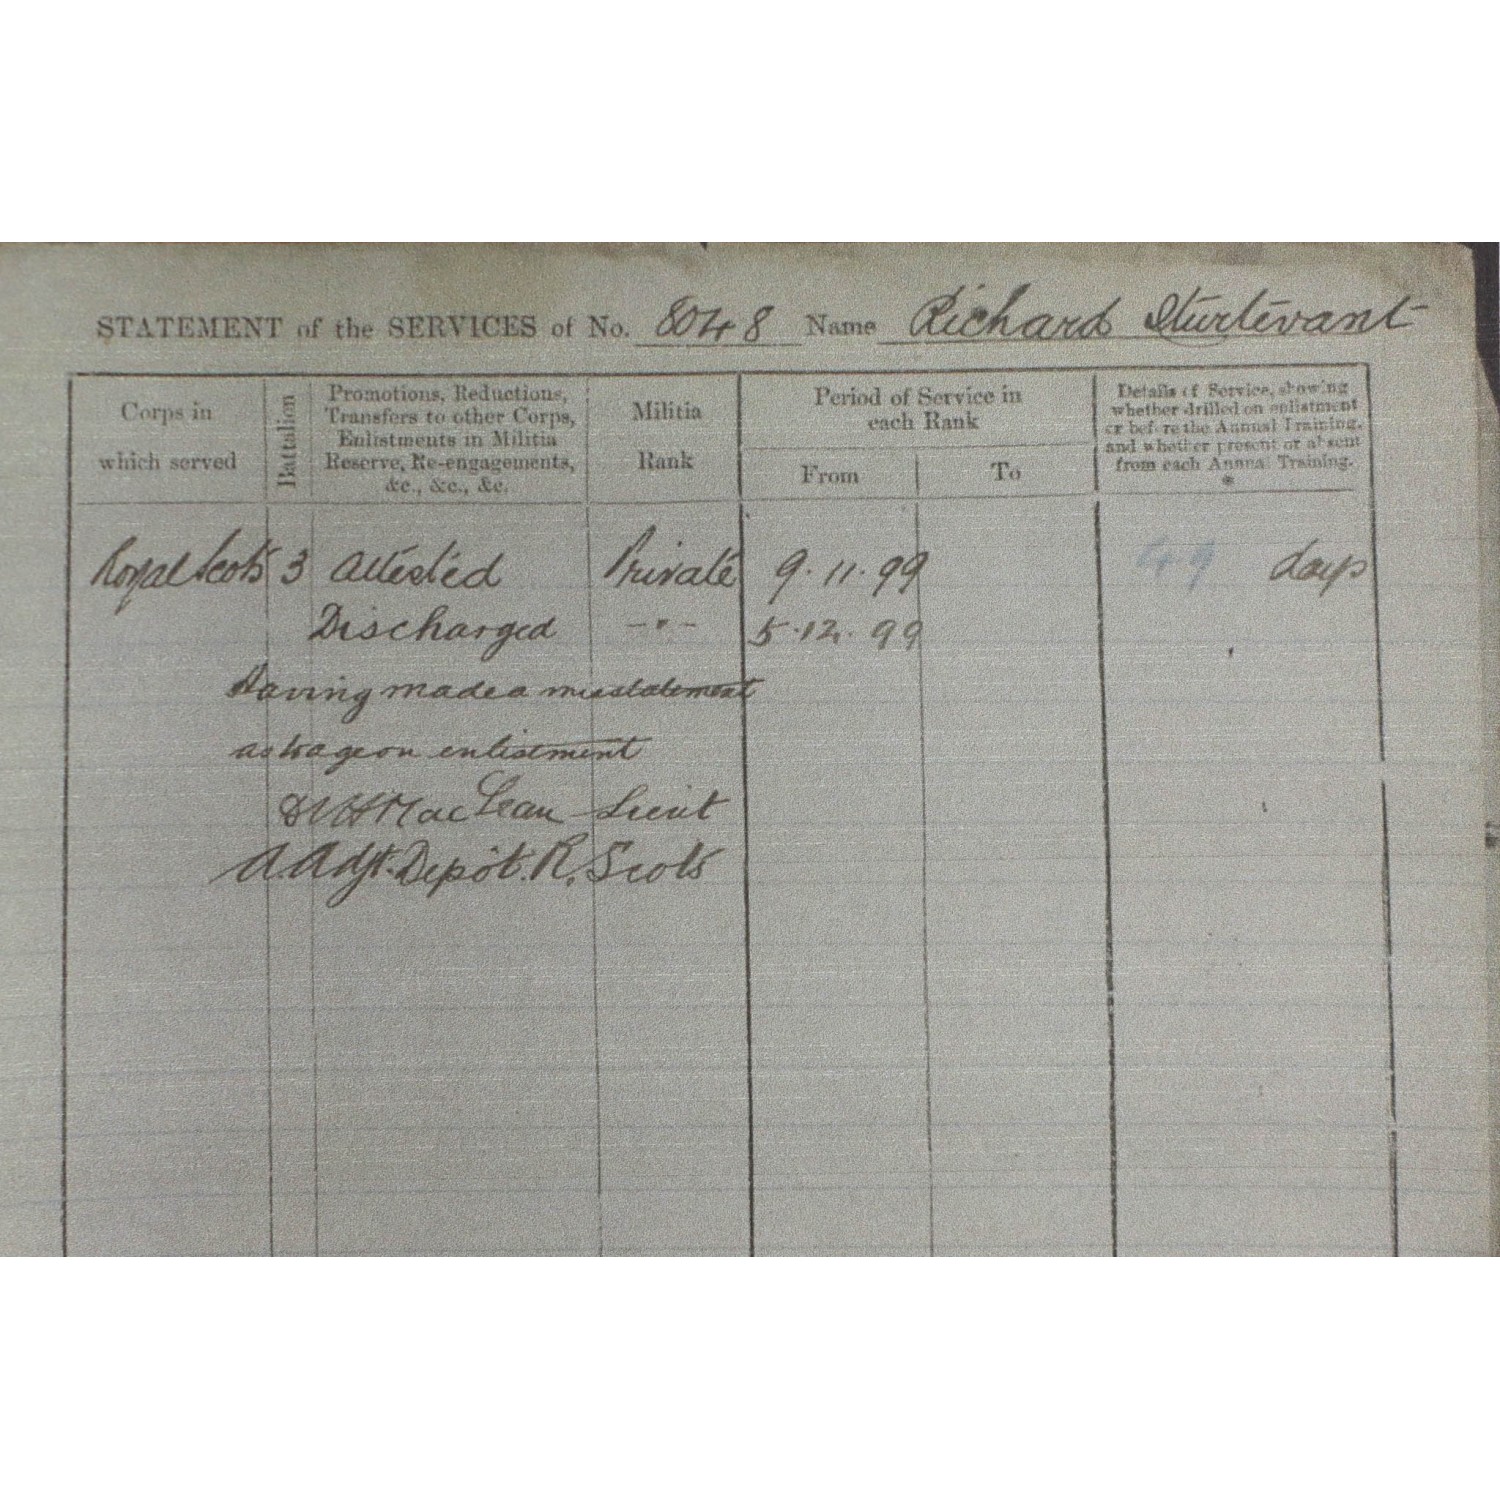 STATEMENT of the SERVICES of No. 8048 Name Richard Sturtevant
Corps in which served
Battalion
Promotions, Reductions,
Transfers to other Corps,
Enlistments in Militia
Reserve, Re-engagements,
&c., &c., &c.
Militia
Rank
Period of Service in
each Rank
From To
Details of Service, showing
whether drilled on enlistment
or before the Annual Training,
and whether present or absent
from each Annual Training.
*
Royal Scots 3 Attested Private 9.11.99 49 days
Discharged -"- 5.12.99
Having made a misstatement
as to age on enlistment
MacLean Lieut
A.Adjt. Depôt. R. Scots